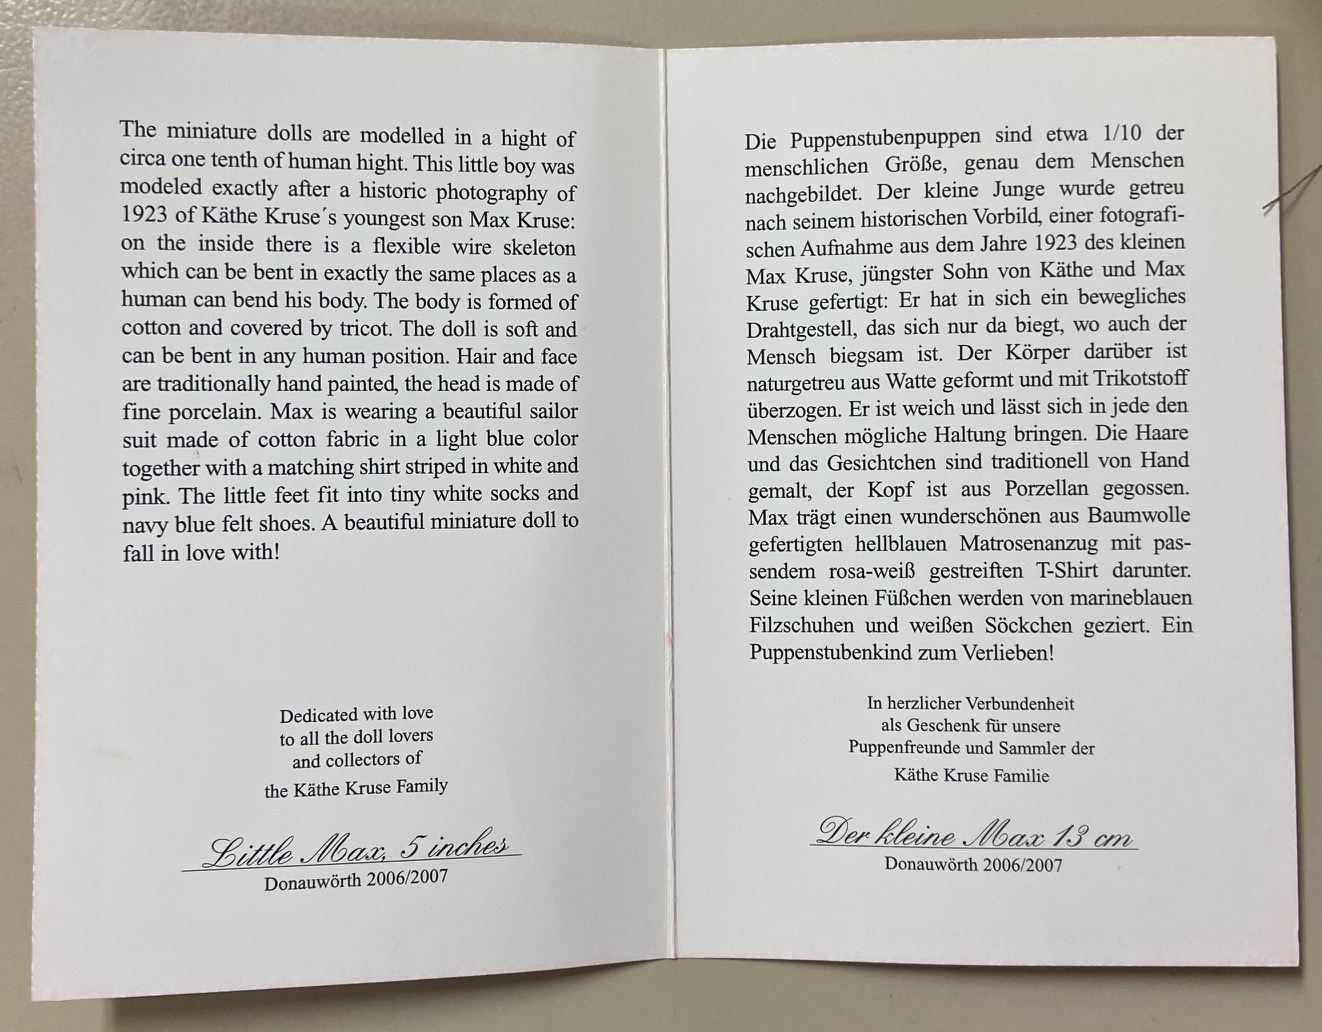 The miniature dolls are modelled in a hight of
circa one tenth of human hight. This little boy was
modeled exactly after a historic photography of
1923 of Käthe Kruse´s youngest son Max Kruse:
on the inside there is a flexible wire skeleton
which can be bent in exactly the same places as a
human can bend his body. The body is formed of
cotton and covered by tricot. The doll is soft and
can be bent in any human position. Hair and face
are traditionally hand painted, the head is made of
fine porcelain. Max is wearing a beautiful sailor
suit made of cotton fabric in a light blue color
together with a matching shirt striped in white and
pink. The little feet fit into tiny white socks and
navy blue felt shoes. A beautiful miniature doll to
fall in love with!
Dedicated with love
to all the doll lovers
and collectors of
the Käthe Kruse Family
Little Max, 5 inches
Donauwörth 2006/2007
Die Puppenstubenpuppen sind etwa 1/10 der
menschlichen Größe, genau dem Menschen
nachgebildet. Der kleine Junge wurde getreu
nach seinem historischen Vorbild, einer fotografi-
schen Aufnahme aus dem Jahre 1923 des kleinen
Max Kruse, jüngster Sohn von Käthe und Max
Kruse gefertigt: Er hat in sich ein bewegliches
Drahtgestell, das sich nur da biegt, wo auch der
Mensch biegsam ist. Der Körper darüber ist
naturgetreu aus Watte geformt und mit Trikotstoff
überzogen. Er ist weich und lässt sich in jede den
Menschen mögliche Haltung bringen. Die Haare
und das Gesichtchen sind traditionell von Hand
gemalt, der Kopf ist aus Porzellan gegossen.
Max trägt einen wunderschönen aus Baumwolle
gefertigten hellblauen Matrosenanzug mit pas-
sendem rosa-weiß gestreiften T-Shirt darunter.
Seine kleinen Füßchen werden von marineblauen
Filzschuhen und weißen Söckchen geziert. Ein
Puppenstubenkind zum Verlieben!
In herzlicher Verbundenheit
als Geschenk für unsere
Puppenfreunde und Sammler der
Käthe Kruse Familie
Der kleine Max 13 cm
Donauwörth 2006/2007